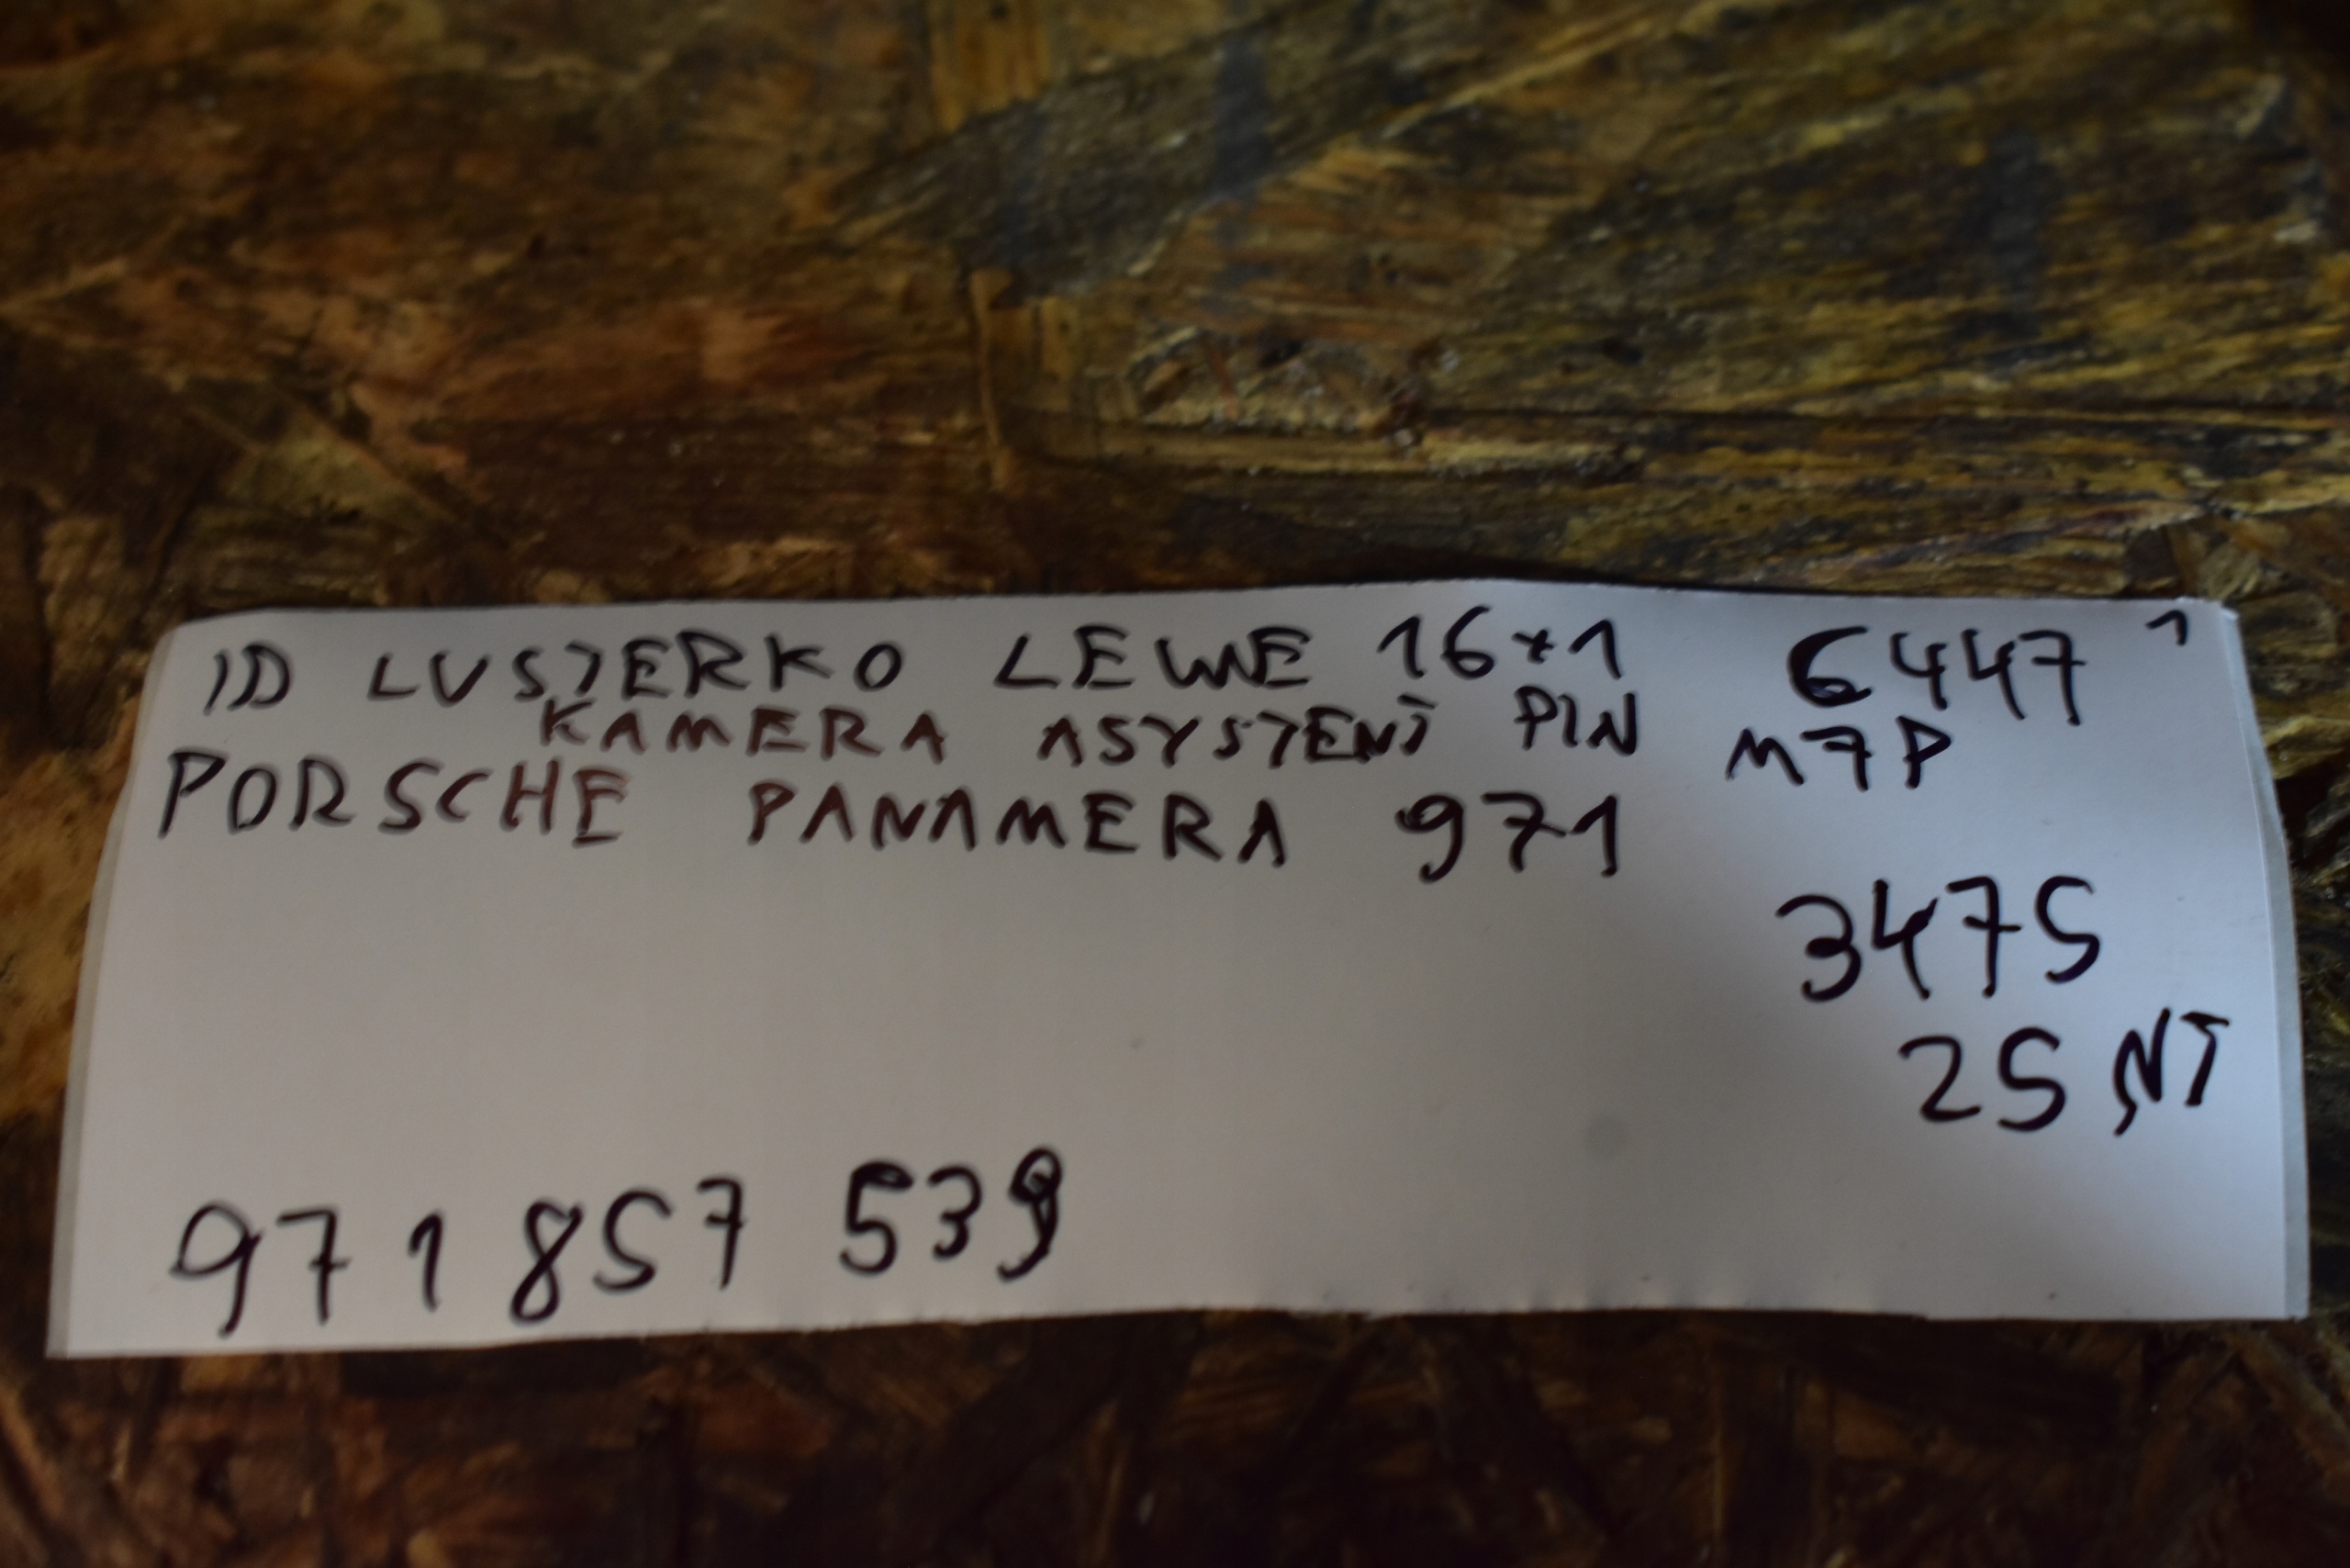 ID LUSTERKO LEWE 16+1 6447 1
KAMERA ASYSTENT PIN M7P
PORSCHE PANAMERA 971
3475
25 NT
971 857 539